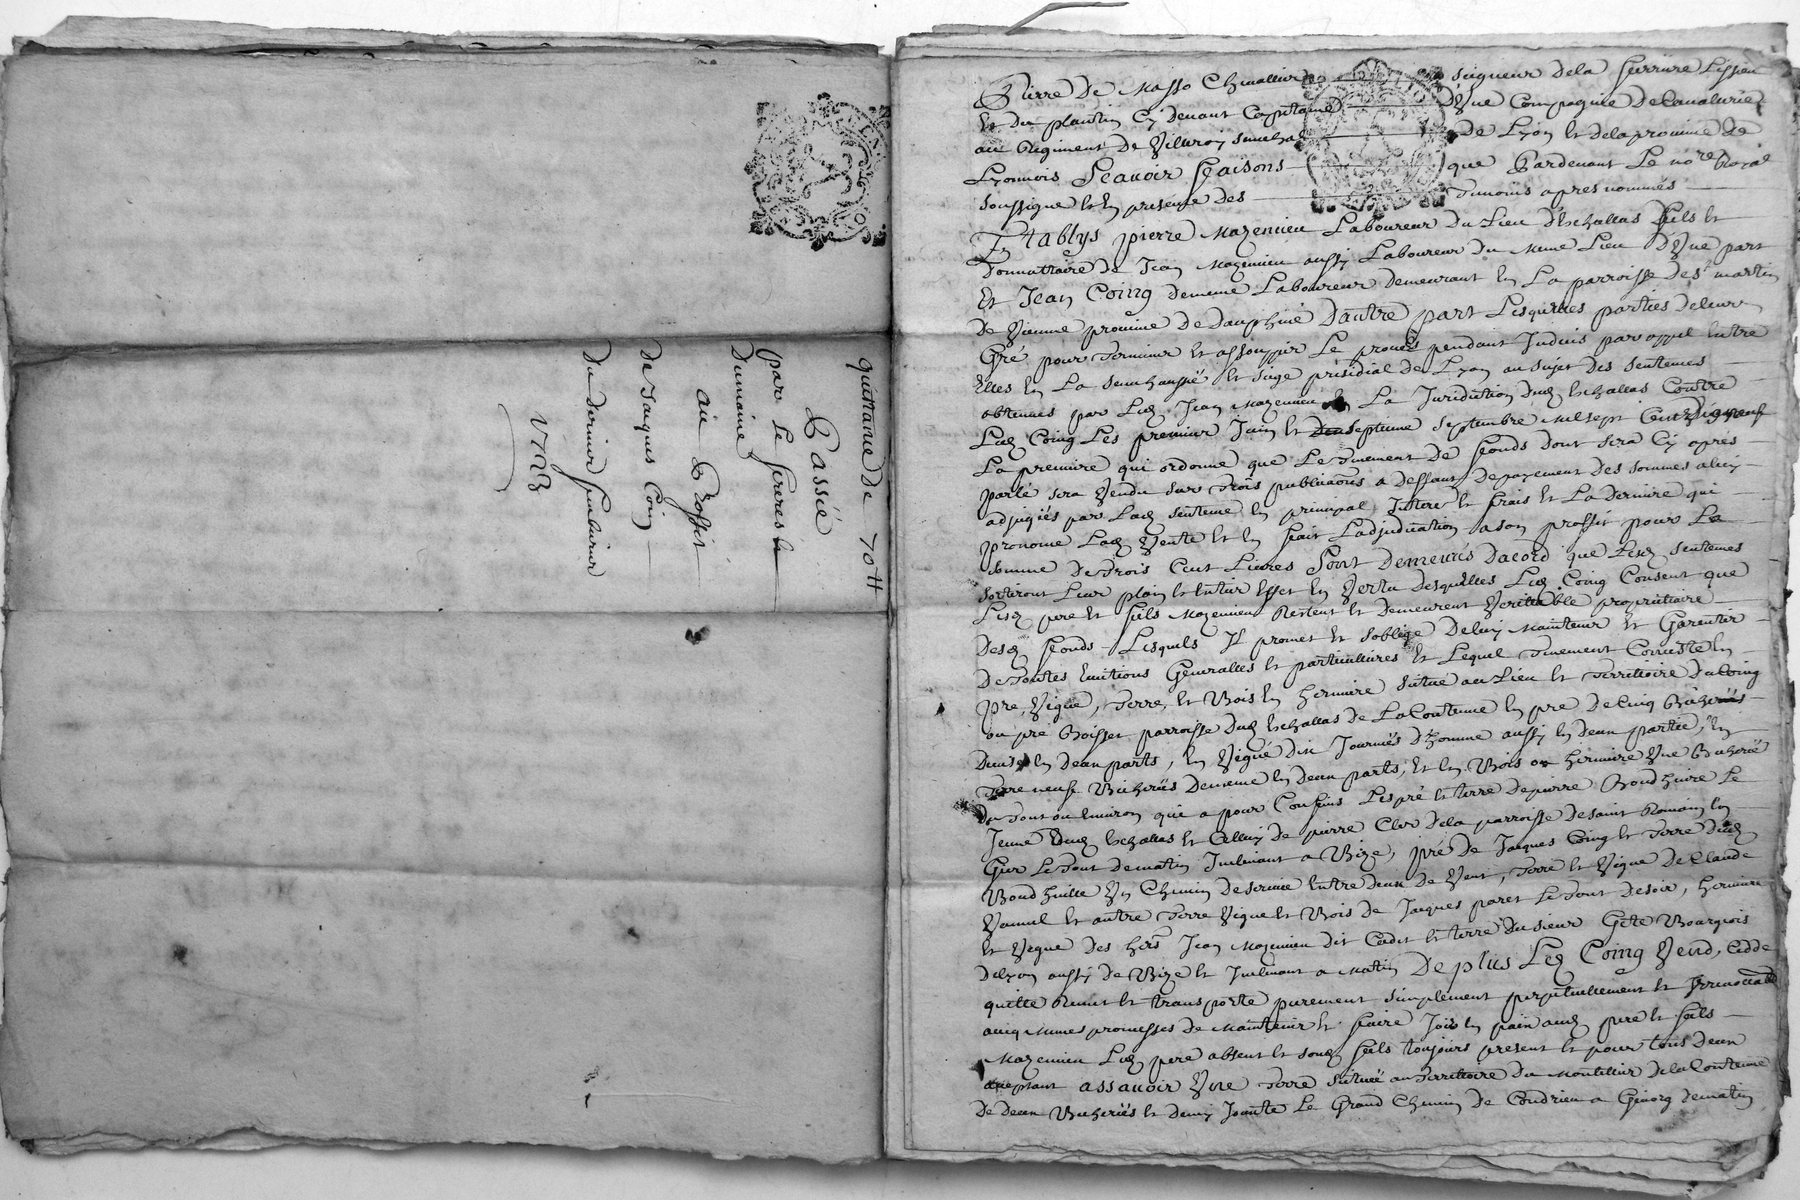 quittance de 70 tt
Passée
par le
Dumaine
au Proffit
de Jacques Coin
Du dernier
1723
Pierre de Masso Chevallier seigneur de la ferriere Lissieu
et du plantin Cy devant Capitaine d'Une Compagnie de Cavalerie
au Regiment de Villeroy de Lyon et de la province de
Lyonnois Scavoir faisons que Pardevant Le no.re Royal
soussigne et en presence des Temoins apres nommés
Etablys pierre Mazenieu Laboureur du Lieu d'Echallas fils et
donnattaire de Jean Mazenieu aussy Laboureur du meme Lieu d'Une part
Et Jean Coing de meme Laboureur demeurant en La parroisse de st martin
de Vienne province de dauphiné D'autre part Lesquelles parties de leur
Gré pour Terminer et assouppir Le procés pendant Indecis par appel Entre
Elles en La senechaussé et siege presidial de Lyon au sujet des sentences
obtenues par Led. Jean Mazenieu en La Juridiction dud. Echallas Contre
Led. Coing Les premier Juin et septieme septembre mil sept Cent
La premiere qui ordonne que Le Tinement de fonds dont sera Cy apres
parlé sera Vendu sur Trois publications a deffaut de payement des sommes
adjugées par Lad. sentence en principal Interet et frais et La derniere qui
prononce Lad. Vente et en fait L'adjudication a son proffit pour La
somme de Trois Cent Livres Sont Demeurés Dacord que Lesd. sentences
sortiront Leur plain et entier Effet en Vertu desquelles Led. Coing Consent que
Lesd. pere et fils Mazenieu Restent et demeurent Veritable propriétaire
desd. fonds Lesquels Il promet et soblige de Leur Maintenir et Garentir
de Toutes Evictions Generalles et particulieres et Lequel Tinement Consiste en
pre, Vigne, Terre, et Bois en hermière situé au Lieu et Territoire du Coing
ou pre Boisset parroisse dud. Echallas de La Contenue en pre de Cinq Bicherées
en deux parts, en Vigne dix Journées d'homme aussy en deux partie, en
Terre neuf Bicherées de meme en deux parts, et en Bois ou hermière Une Bicherée
du Tout ou Environ qui a pour Confins Les pré et terre de pierre Bondhuire Le
Jeune dud. Echallas et Celluy de pierre Cler de la parroisse de saint Romain en
Gier Le Tout de matin Inclinant a Bize, pré de Jacques Coing et Terre dud.
Un Chemin de service Entre deux de Vent, Terre et Vigne de Claude
et autre Terre Vigne et Bois de Jacques paret Le Tout de soir, hermière
et Vigne des hers Jean Mazenieu dit Cadet et terre du sieur Gete Bourgeois
de Lyon aussy de Bize et Inclinant a Matin De plus Led. Coing Vend, Cedde
quitte Remet et transporte purement simplement perpetuellement et
avecq memes promesses de Maintenir et faire Joüir en paix aud. pere et fils
Mazenieu Led. pere absent et soud. fils toujours present et pour tous deux
acceptant assavoir Une Terre située au Territoire du Montellier de la Contenue
de deux Bicherées et demy Joint Le Grand Chemin de Condrieu a Givorg de matin